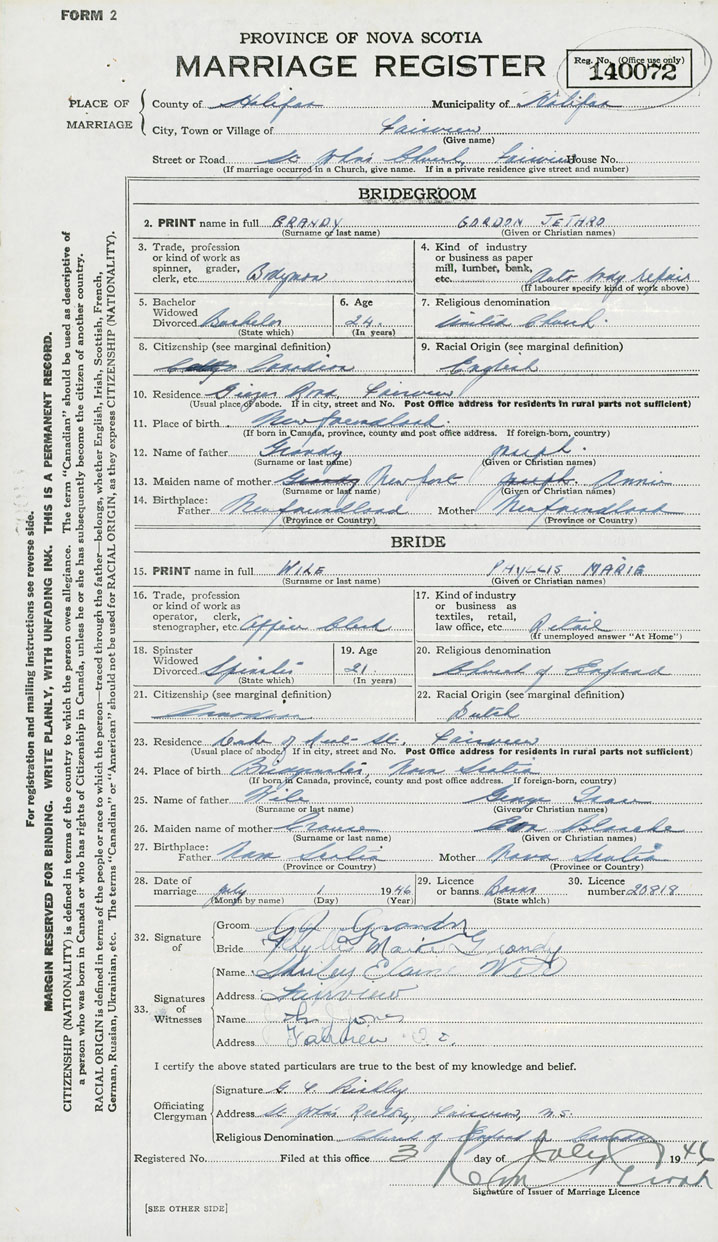 FORM 2
PROVINCE OF NOVA SCOTIA
MARRIAGE REGISTER
Reg. No. (Office use only)
140072
PLACE OF MARRIAGE
County of Halifax Municipality of Halifax
City, Town or Village of Fairview
(Give name)
Street or Road St John's Church, Fairview House No.
(If marriage occurred in a Church, give name. If in a private residence give street and number)
BRIDEGROOM
2. PRINT name in full GRANDY GORDON JETHRO
(Surname or last name) (Given or Christian names)
3. Trade, profession or kind of work as spinner, grader, clerk, etc. Bodyman
4. Kind of industry or business as paper mill, lumber, bank, etc. Auto Body repair
(If labourer specify kind of work above)
5. Bachelor Widowed Divorced Bachelor
(State which)
6. Age 24
(In years)
7. Religious denomination United Church
8. Citizenship (see marginal definition) Canadian
9. Racial Origin (see marginal definition) English
10. Residence Road, Fairview
(Usual place of abode. If in city, street and No. Post Office address for residents in rural parts not sufficient)
11. Place of birth Newfoundland
(If born in Canada, province, county and post office address. If foreign-born, country)
12. Name of father Grandy Joseph
(Surname or last name) (Given or Christian names)
13. Maiden name of mother Grandy Newport Joseph Annie
(Surname or last name) (Given or Christian names)
14. Birthplace: Father Newfoundland Mother Newfoundland
(Province or Country) (Province or Country)
BRIDE
15. PRINT name in full WILE PHYLLIS MARIE
(Surname or last name) (Given or Christian names)
16. Trade, profession or kind of work as operator, clerk, stenographer, etc. Office Clerk
17. Kind of industry or business as textiles, retail, law office, etc. Retail
(If unemployed answer "At Home")
18. Spinster Widowed Divorced Spinster
(State which)
19. Age 21
(In years)
20. Religious denomination Church of England
21. Citizenship (see marginal definition) Canadian
22. Racial Origin (see marginal definition) Dutch
23. Residence St., Fairview
(Usual place of abode. If in city, street and No. Post Office address for residents in rural parts not sufficient)
24. Place of birth Bridgewater, Nova Scotia
(If born in Canada, province, county and post office address. If foreign-born, country)
25. Name of father Wile George
(Surname or last name) (Given or Christian names)
26. Maiden name of mother Crouse Blanche
(Surname or last name) (Given or Christian names)
27. Birthplace: Father Nova Scotia Mother Nova Scotia
(Province or Country) (Province or Country)
28. Date of marriage July 1 1946
(Month by name) (Day) (Year)
29. Licence or banns Banns
(State which)
30. Licence number 20818
32. Signature of
Groom G J Grandy
Bride Phyllis Marie Grandy
33. Signatures of Witnesses
Name Shirley Elaine Wile
Address Fairview
Name Jones
Address Fairview
I certify the above stated particulars are true to the best of my knowledge and belief.
Officiating Clergyman
Signature
Address St John's Rectory, Fairview, N.S.
Religious Denomination Church of England in Canada
Registered No. Filed at this office 3 day of July 1946
Signature of Issuer of Marriage Licence
[SEE OTHER SIDE]
For registration and mailing instructions see reverse side.
MARGIN RESERVED FOR BINDING. WRITE PLAINLY, WITH UNFADING INK. THIS IS A PERMANENT RECORD.
CITIZENSHIP (NATIONALITY) is defined in terms of the country to which the person owes allegiance. The term "Canadian" should be used as descriptive of
a person who was born in Canada or who has rights of Citizenship in Canada, unless he or she has subsequently become the citizen of another country.
RACIAL ORIGIN is defined in terms of the people or race to which the person—traced through the father—belongs, whether English, Irish, Scottish, French,
German, Russian, Ukrainian, etc. The terms "Canadian" or "American" should not be used for RACIAL ORIGIN, as they express CITIZENSHIP (NATIONALITY).